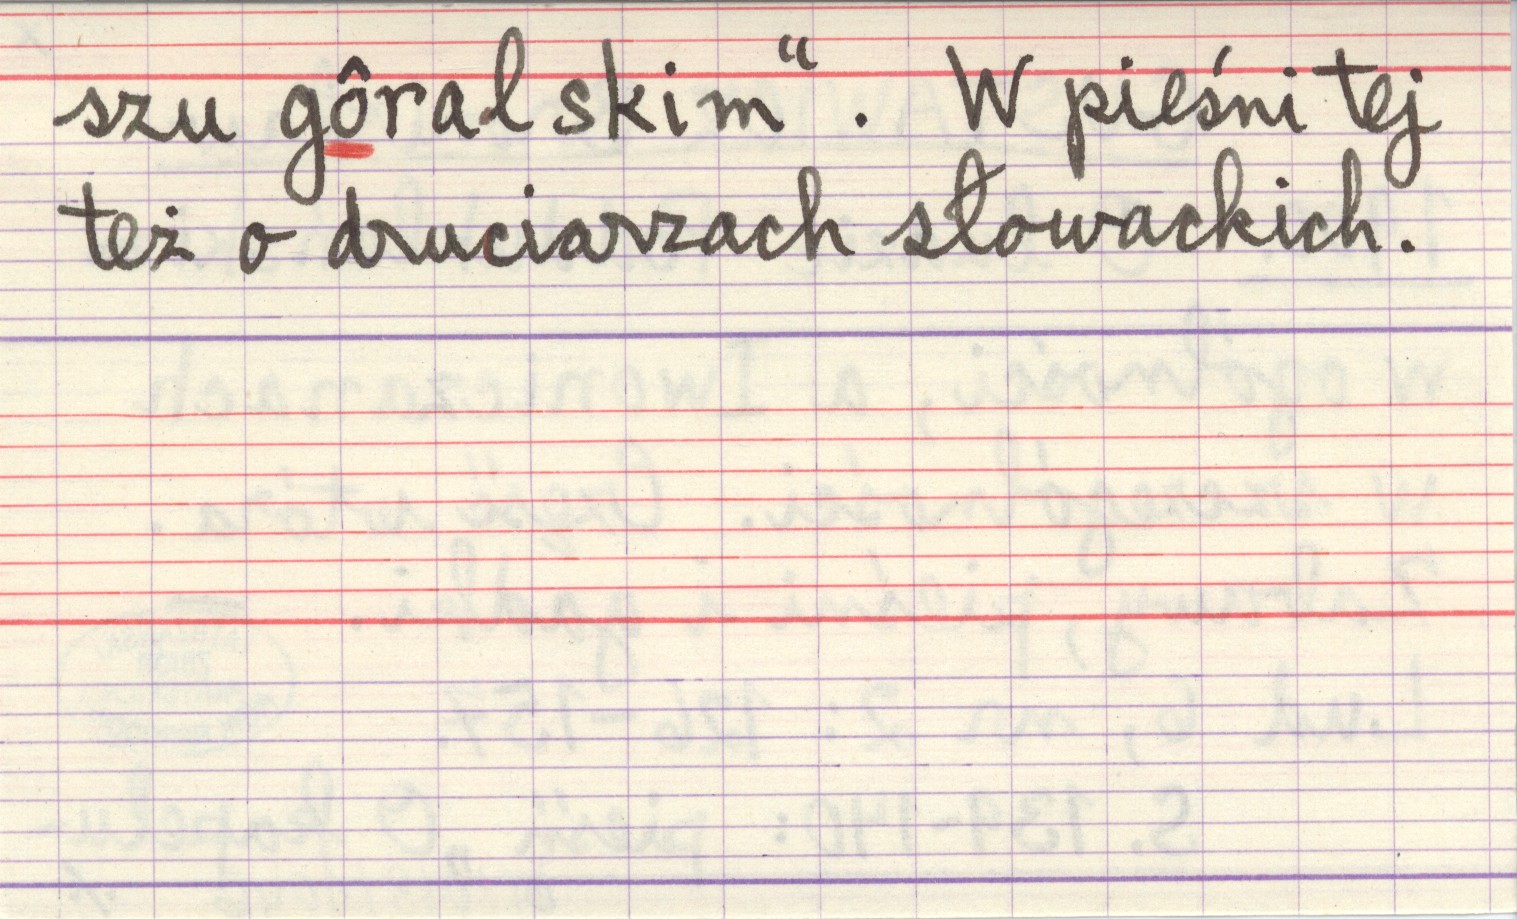 szu gôralskim". W pieśni tej
też o druciarzach słowackich.